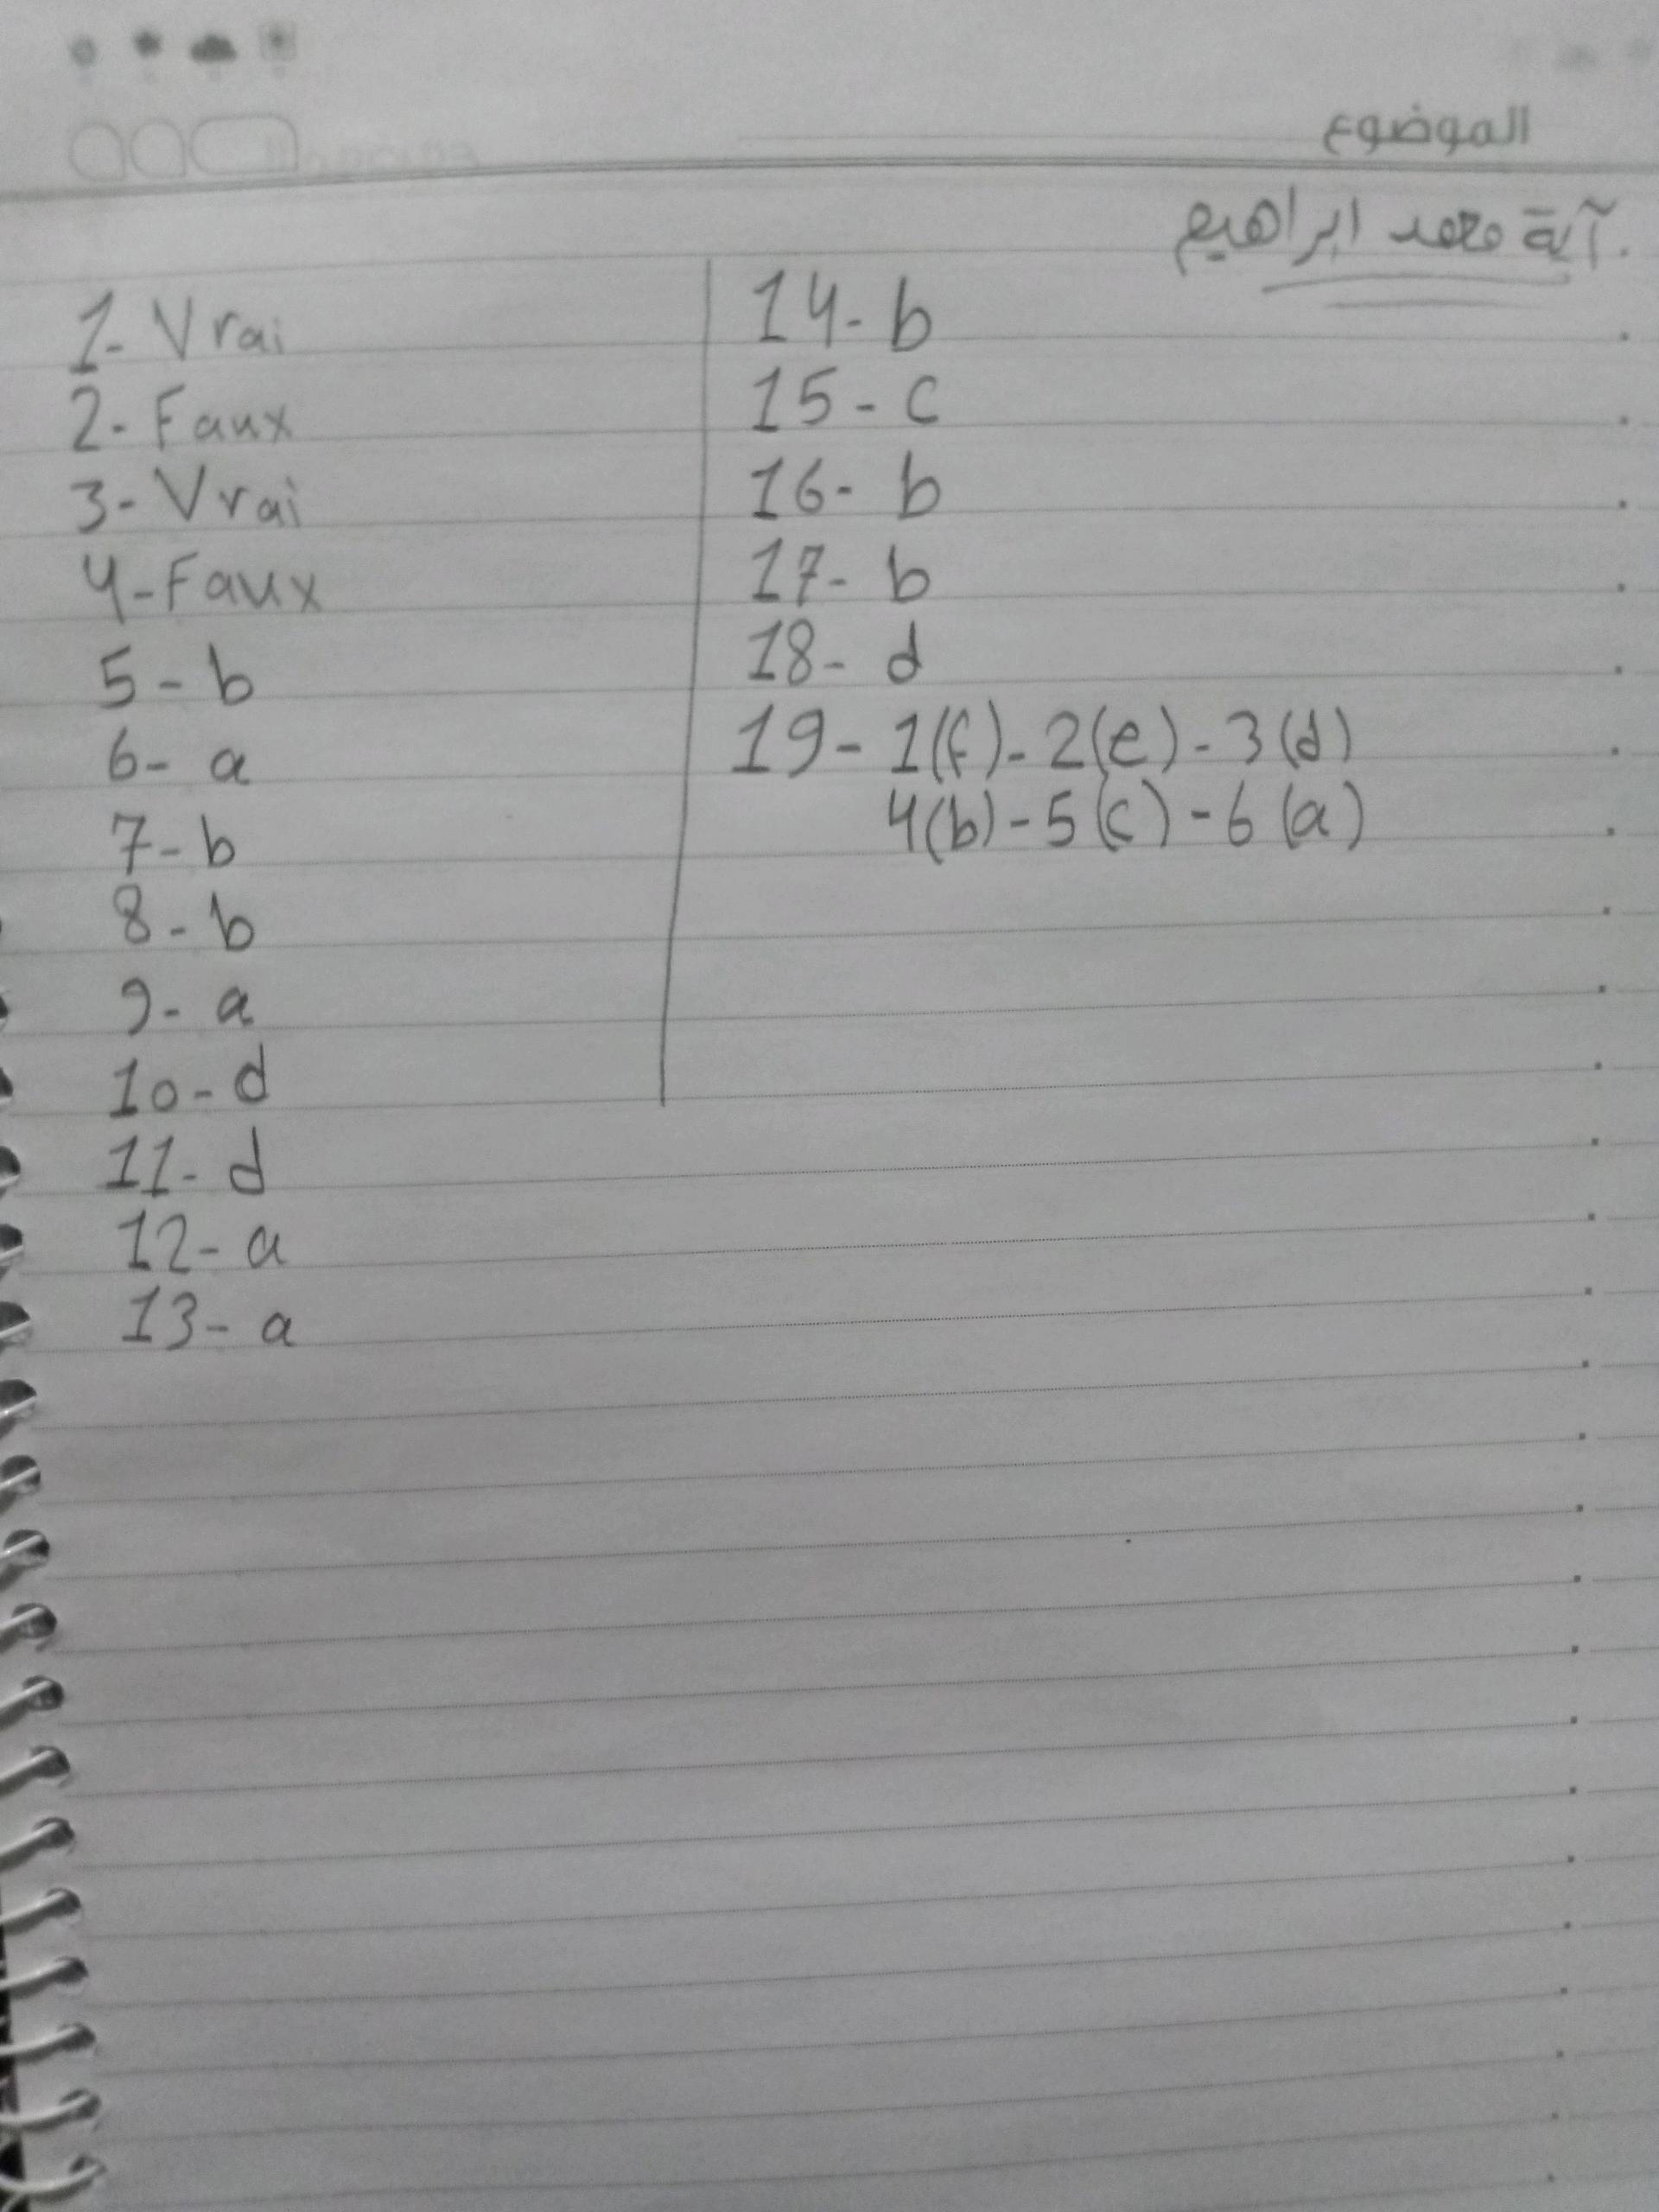 الموضوع
آية محمد ابراهيم
1- Vrai
2- Faux
3- Vrai
4- Faux
5 - b
6- a
7- b
8 - b
9- a
10- d
11- d
12- a
13- a
14- b
15 - c
16- b
17- b
18- d
19- 1(f)- 2(e) - 3(d)
4(b) - 5(c) - 6(a)